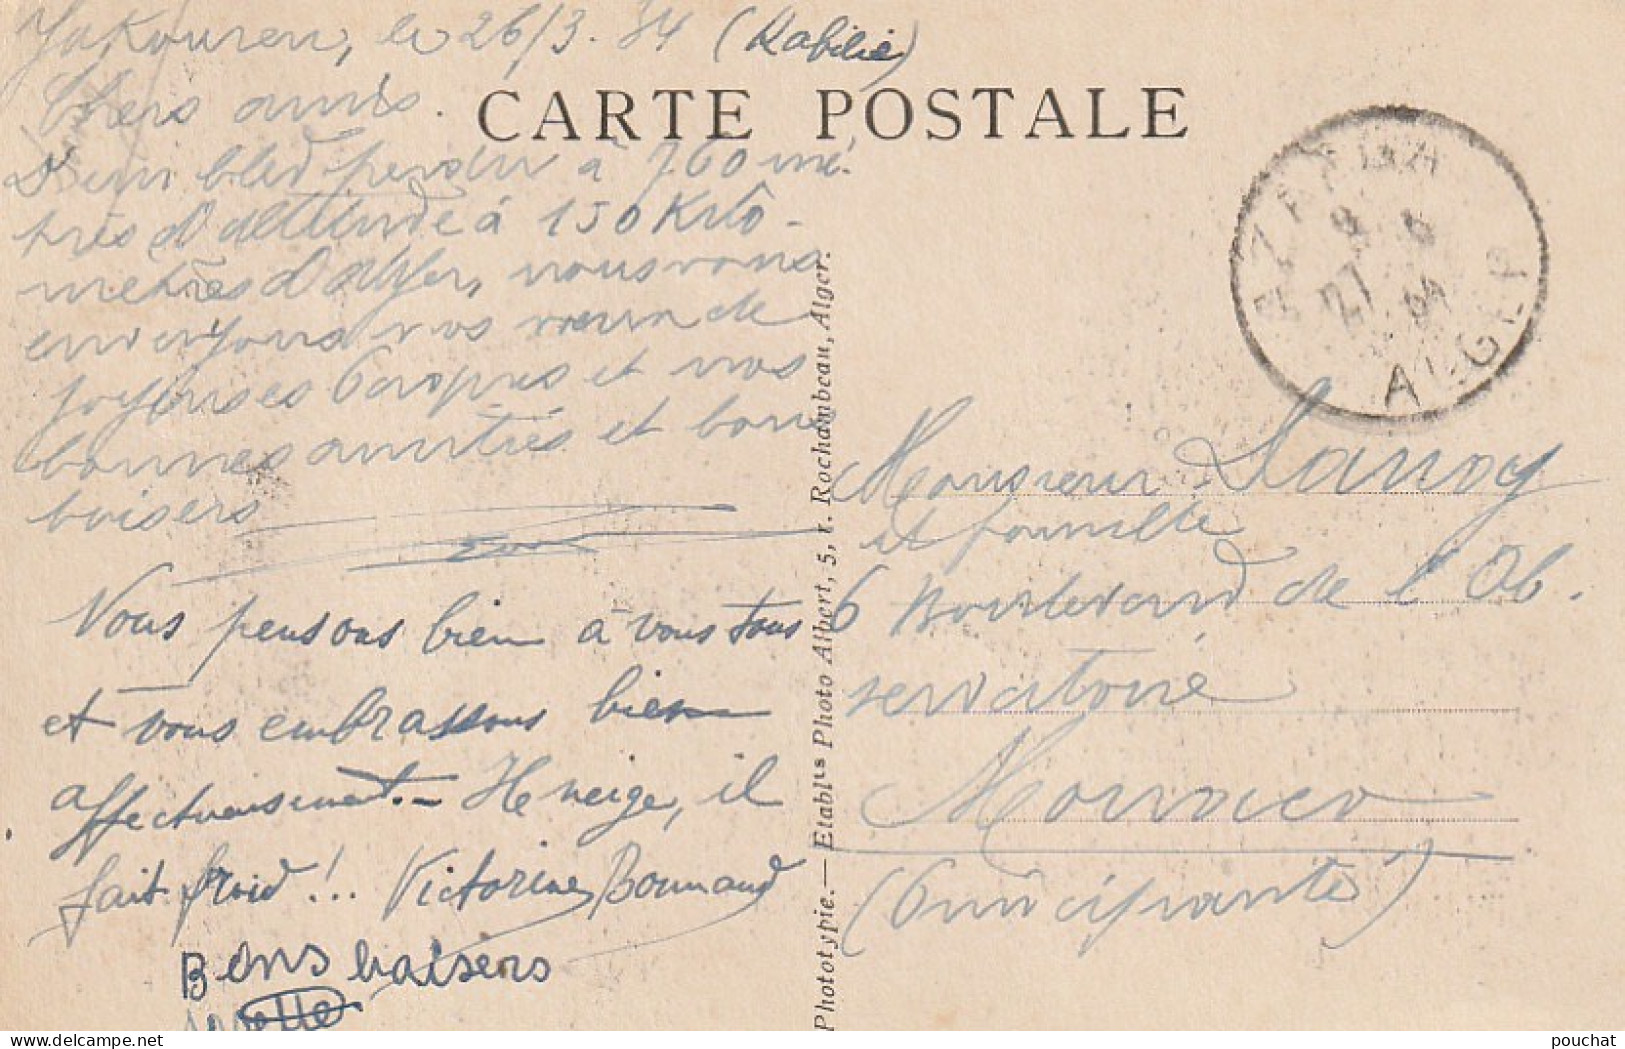 Yakouren, le 26/3.34 (Kabilie)
Chers amis.
D'un bled perdu à 760 mè-
tres d'altitude à 150 Kilo-
mètres d'Alger, nous vous
envoyons nos vœux de
joyeuses Pâques et nos
bonnes amitiés et bons
baisers
Vous pensons bien à vous tous
et vous embrassons bien
affectueusement.- Il neige, il
fait froid!.. Victorine Bonnaud
Bons baisers
Yvette
CARTE POSTALE
Phototypie. — Etablts Photo Albert, 5, r. Rochambeau, Alger.
AZAZGA
27
ALGER
Monsieur Lanoy
et famille
6 Boulevard de l'Ob.
servatoire
Monaco
(Principauté)
pouchat
www.delcampe.net